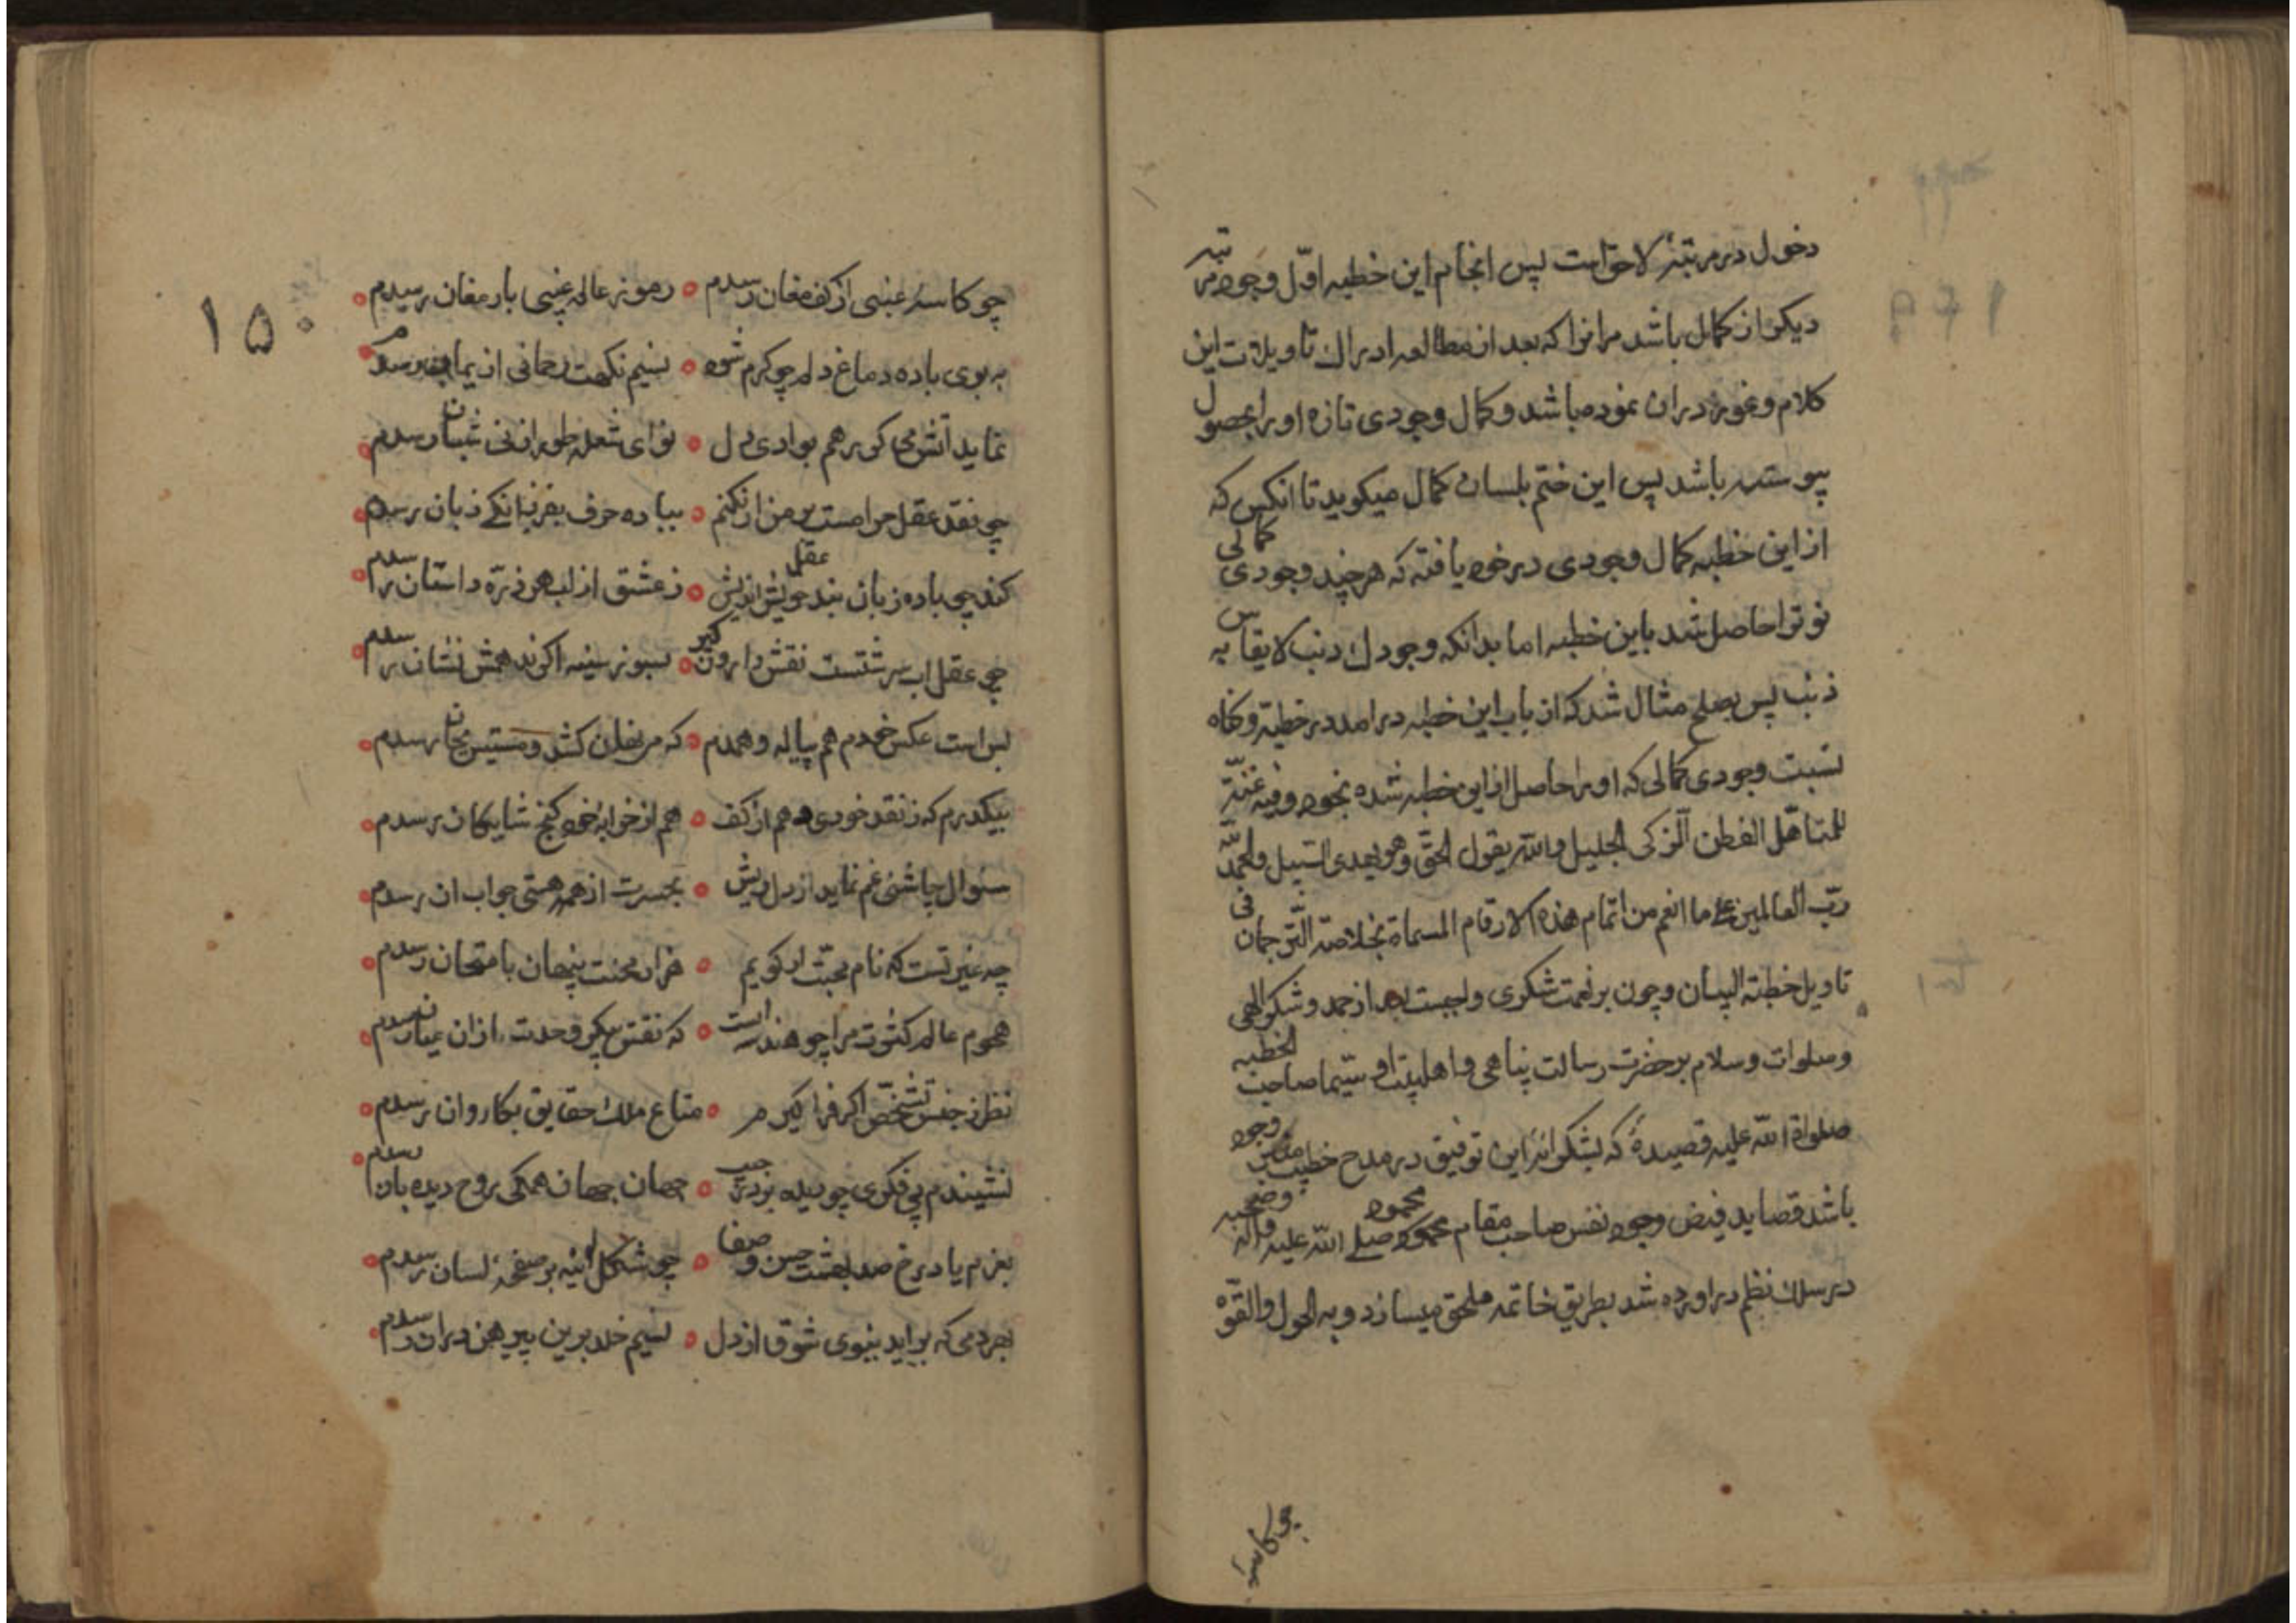 دخول در مرتبهٔ لاحق است پس انجام این خطبه اوّل وجود مرتبه
دیکر از کمال باشد مرانرا که بعد از مطالعه ادراك تاویلات این
کلام و غور دران نموده باشد و کمال وجودی تازه او را بحصول
پیوسته باشد پس این ختم بلسان کمال میکوید تا انکس که
از این خطبه کمال وجودی در خود یافته که هر چند وجودی کمالی
نو ترا حاصل شد باین خطبه اما بدانکه وجودك ذنب لایقاس به
ذنب پس بصلح مثال شد که از باب این خطبه درامد در خطبة و کناه
نسبت وجودی کمالی که او را حاصل از این خطبه شده بخود وفیه غنیّة
للمتاهّل الفطن الزکی الجلیل والله یقول الحقّ وهو یهدی السّبیل والحمدلله
ربّ العالمین علی ما انعم من اتمام هذه الارقام المسماة بخلاصة التّرجمان فی
تاویل خطبة البیان و چون بر نعمت شکری واجبست بعد از حمد و شکر الهی
وصلوات وسلام بر حضرت رسالت پناهی و اهلبیت او سیّما صاحب الخطبه
صلواة الله علیه قصیدهٔ که بشکرانهٔ این توفیق در مدح خطیب منابر وجود
باشد قصاید فیض وجود نفس صاحب مقام محمود محمود صلی الله علیه واله وصحبه
در سلك نظم دراورده شد بطریق خاتمه ملحق میسازد و به الحول والقوّة
چو کاسهٔ
۱۵۰
چو کاسهٔ عنبی از کف مغان رسدم ٥ رموز عالم غیبی بارمغان رسدم ٥
به بوی باده دماغ دلم چو کرم شود ٥ نسیم نکهت رحمانی از یمان رسدم
نماید آتش می کر رهم بوادی دل ٥ نوای شعلهٔ طور از نی شبان رسدم ٥
چو نقد عقل حرامست بر من ار نکنم ٥ بباده حرف بفرزانکی زبان رسدم ٥
کند چو باده زبان بند عقل خویش اندیش ٥ ز عشق از لب هر ذرّه داستان رسدم ٥
چو عقل اب سرشتست نقش دارون کیر ٥ بسوز سینه اکر ند همش نشان رسدم ٥
بس است عکس خودم هم پیاله و همدم ٥ که مر بغل کشد و مستیی بجان رسدم ٥
بیکدرم که ز نقد خودی دهم از کف ٥ هم از خرابهٔ خود کنج شایکان رسدم ٥
سئوال چاشنی غم نماید از دل ریش ٥ بحسرت از همه هستی جواب ان رسدم ٥
چه غیر تست که نام محبّت ار کویم ٥ هزار محنت پنهان بامتحان رسدم ٥
هجوم عالم کثرت مرا چو هندسه است ٥ که نقش پیکر وحدت ازان عیان رسدم ٥
نظر ز جنس تشخّص اکر فرا کیرم ٥ متاع ملك حقایق بکاروان رسدم ٥
نشیندم پی فکری چو دیده بر در جیب ٥ جهان جهان همکی بروح دیده بان رسدم ٥
بعزم یاد رخ صد بهشت حسن و صفا ٥ چو شکل اینه بر صفحهٔ لسان رسدم ٥
بهر دمی که براید بنوی شوق از دل ٥ نسیم خلد برین پیرهن دران رسدم ٥